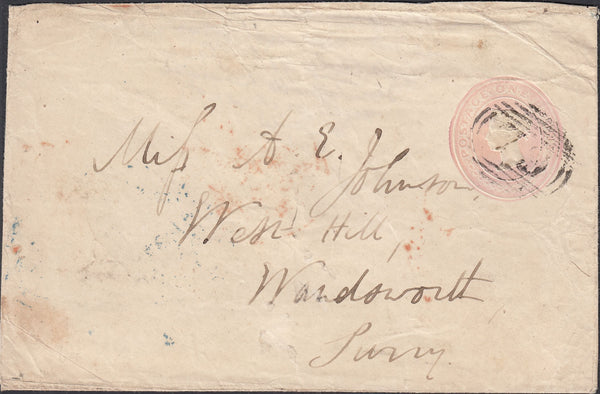 POSTAGE ONE
Miss A E. Johnson,
West Hill,
Wandsworth
Surry.